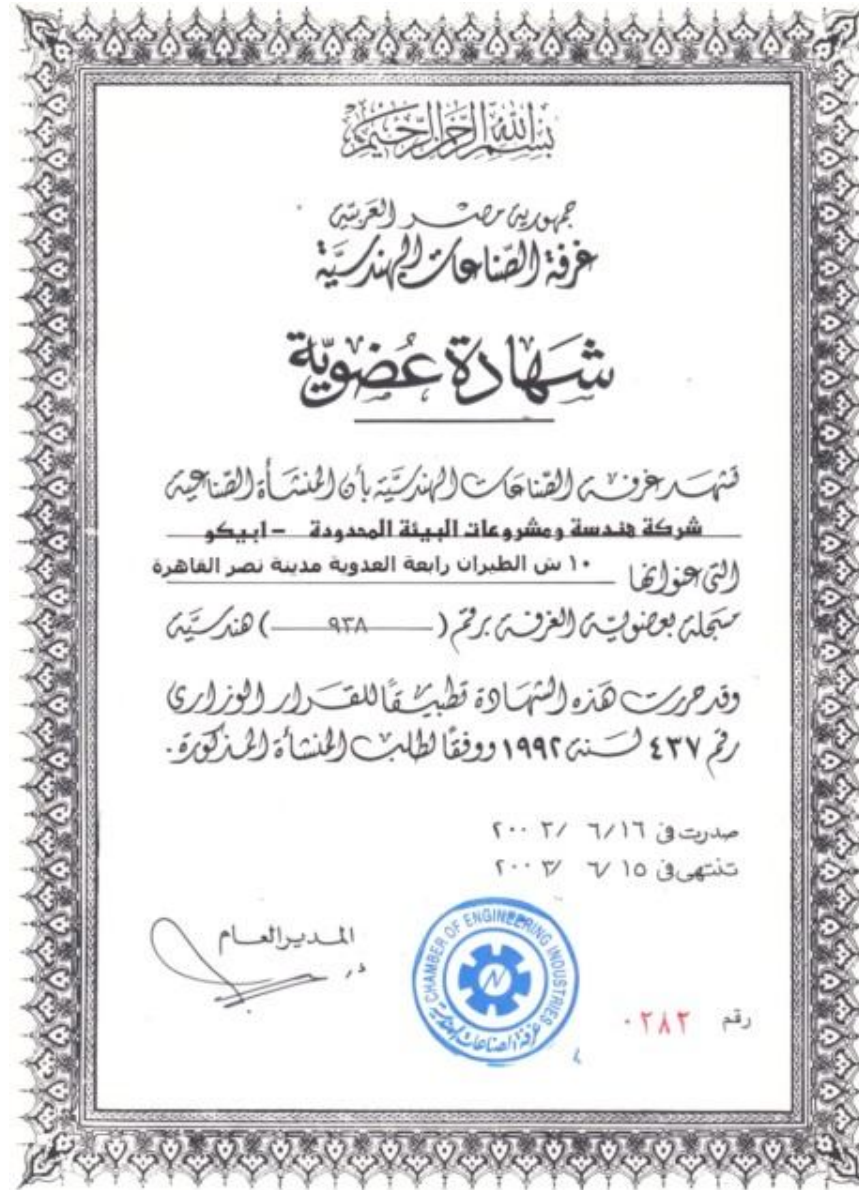 بسم الله الرحمن الرحيم
جمهورية مصر العربية
غرفة الصناعات الهندسية
شهادة عضوية
تشهد غرفة الصناعات الهندسية بأن المنشأة الصناعية
شركة هندسة ومشروعات البيئة المحدودة - ابيكو
التى عنوانها ١٠ ش الطيران رابعة العدوية مدينة نصر القاهرة
مسجلة بعضوية الغرفة برقم ( ٩٣٨ ) هندسية
وقد حررت هذه الشهادة تطبيقًا للقرار الوزارى
رقم ٤٣٧ لسنة ١٩٩٢ ووفقًا لطلب المنشأة المذكورة.
صدرت فى ١٦/ ٦ /٢٠٠٢
تنتهى فى ١٥ /٦ /٢٠٠٣
المدير العام
CHAMBER OF ENGINEERING INDUSTRIES
غرفة الصناعات الهندسية
رقم ٠٢٨٢